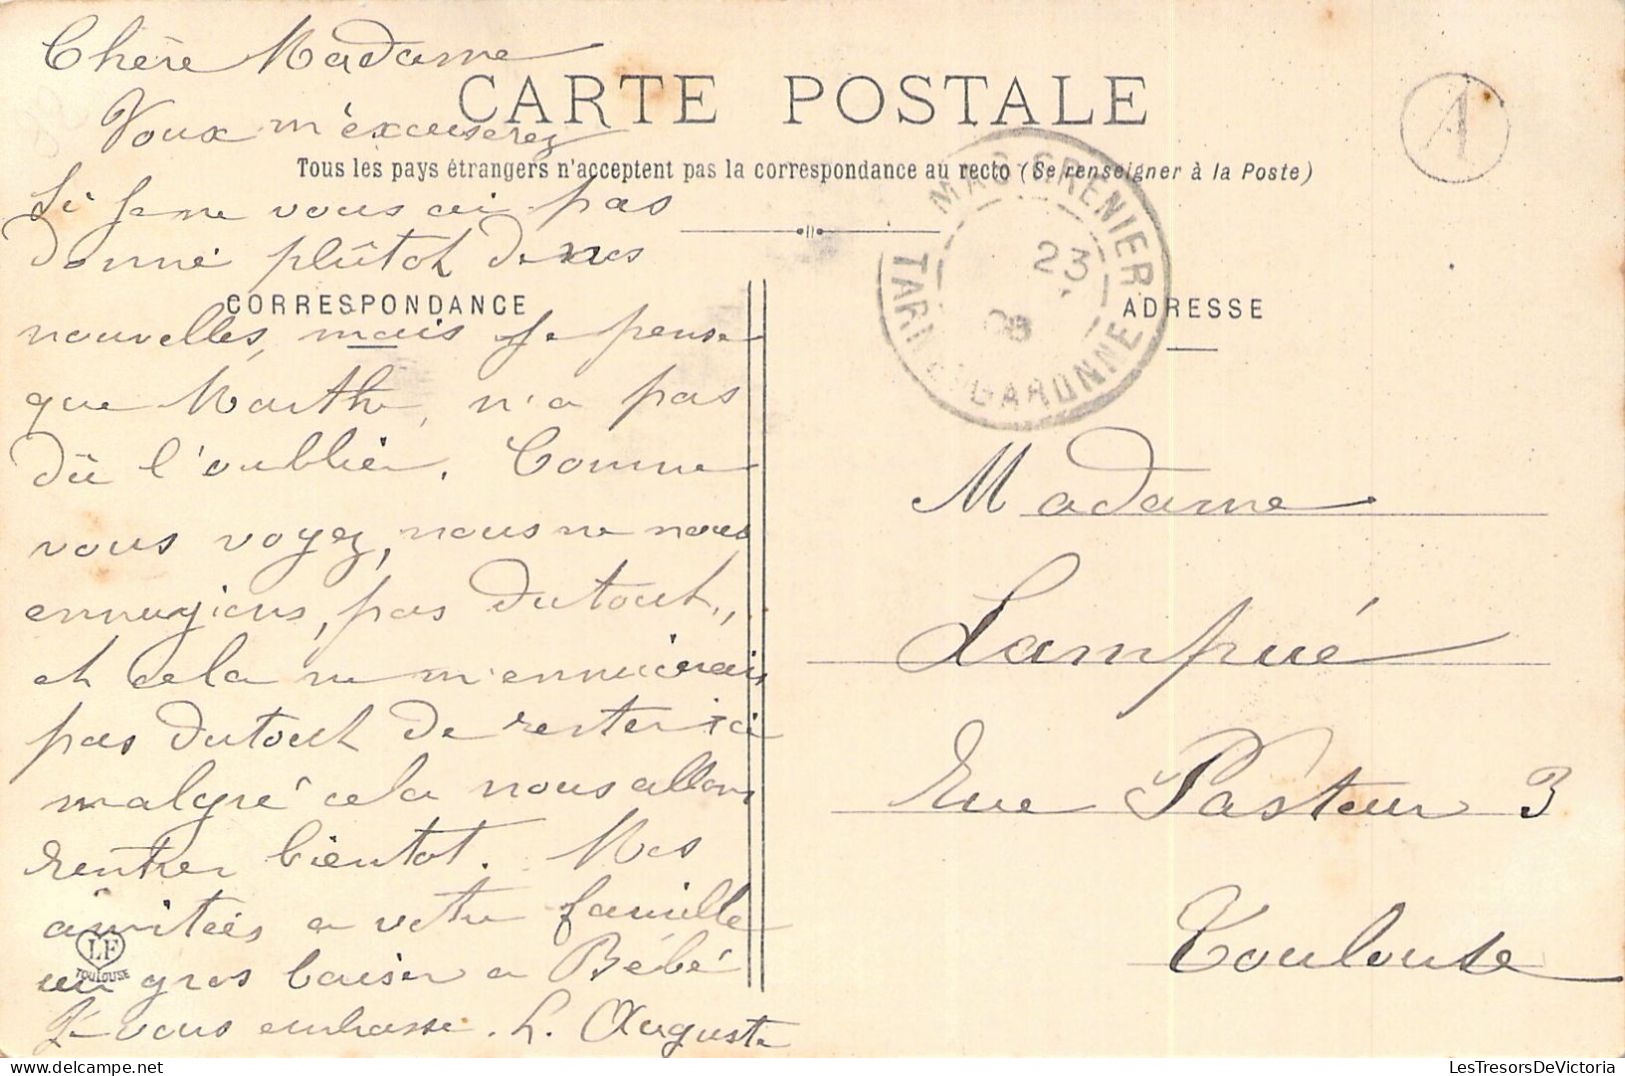 Chère Madame
CARTE POSTALE
Voux m'excuserez
Tous les pays étrangers n'acceptent pas la correspondance au recto (Se renseigner à la Poste)
A
Si je ne vous ai pas
donné plûtot de mes
CORRESPONDANCE
nouvelles, mais je pense
que Marthe, n'a pas
dû l'oublier. Comme
vous voyez, nous ne nous
ennuyions, pas dutout,
et cela ne m'ennuierais
pas dutout de rester ici
malgré cela nous allons
rentrer bientot. Mes
amitiés a votre famille
un gros baiser a Bébé
Je vous embrasse. L. Auguste
LF
TOULOUSE
MAS-GRENIER
23
08
TARN-&-GARONNE
ADRESSE
Madame
Lampué
Rue Pasteur 3
Toulouse
LesTresorsDeVictoria